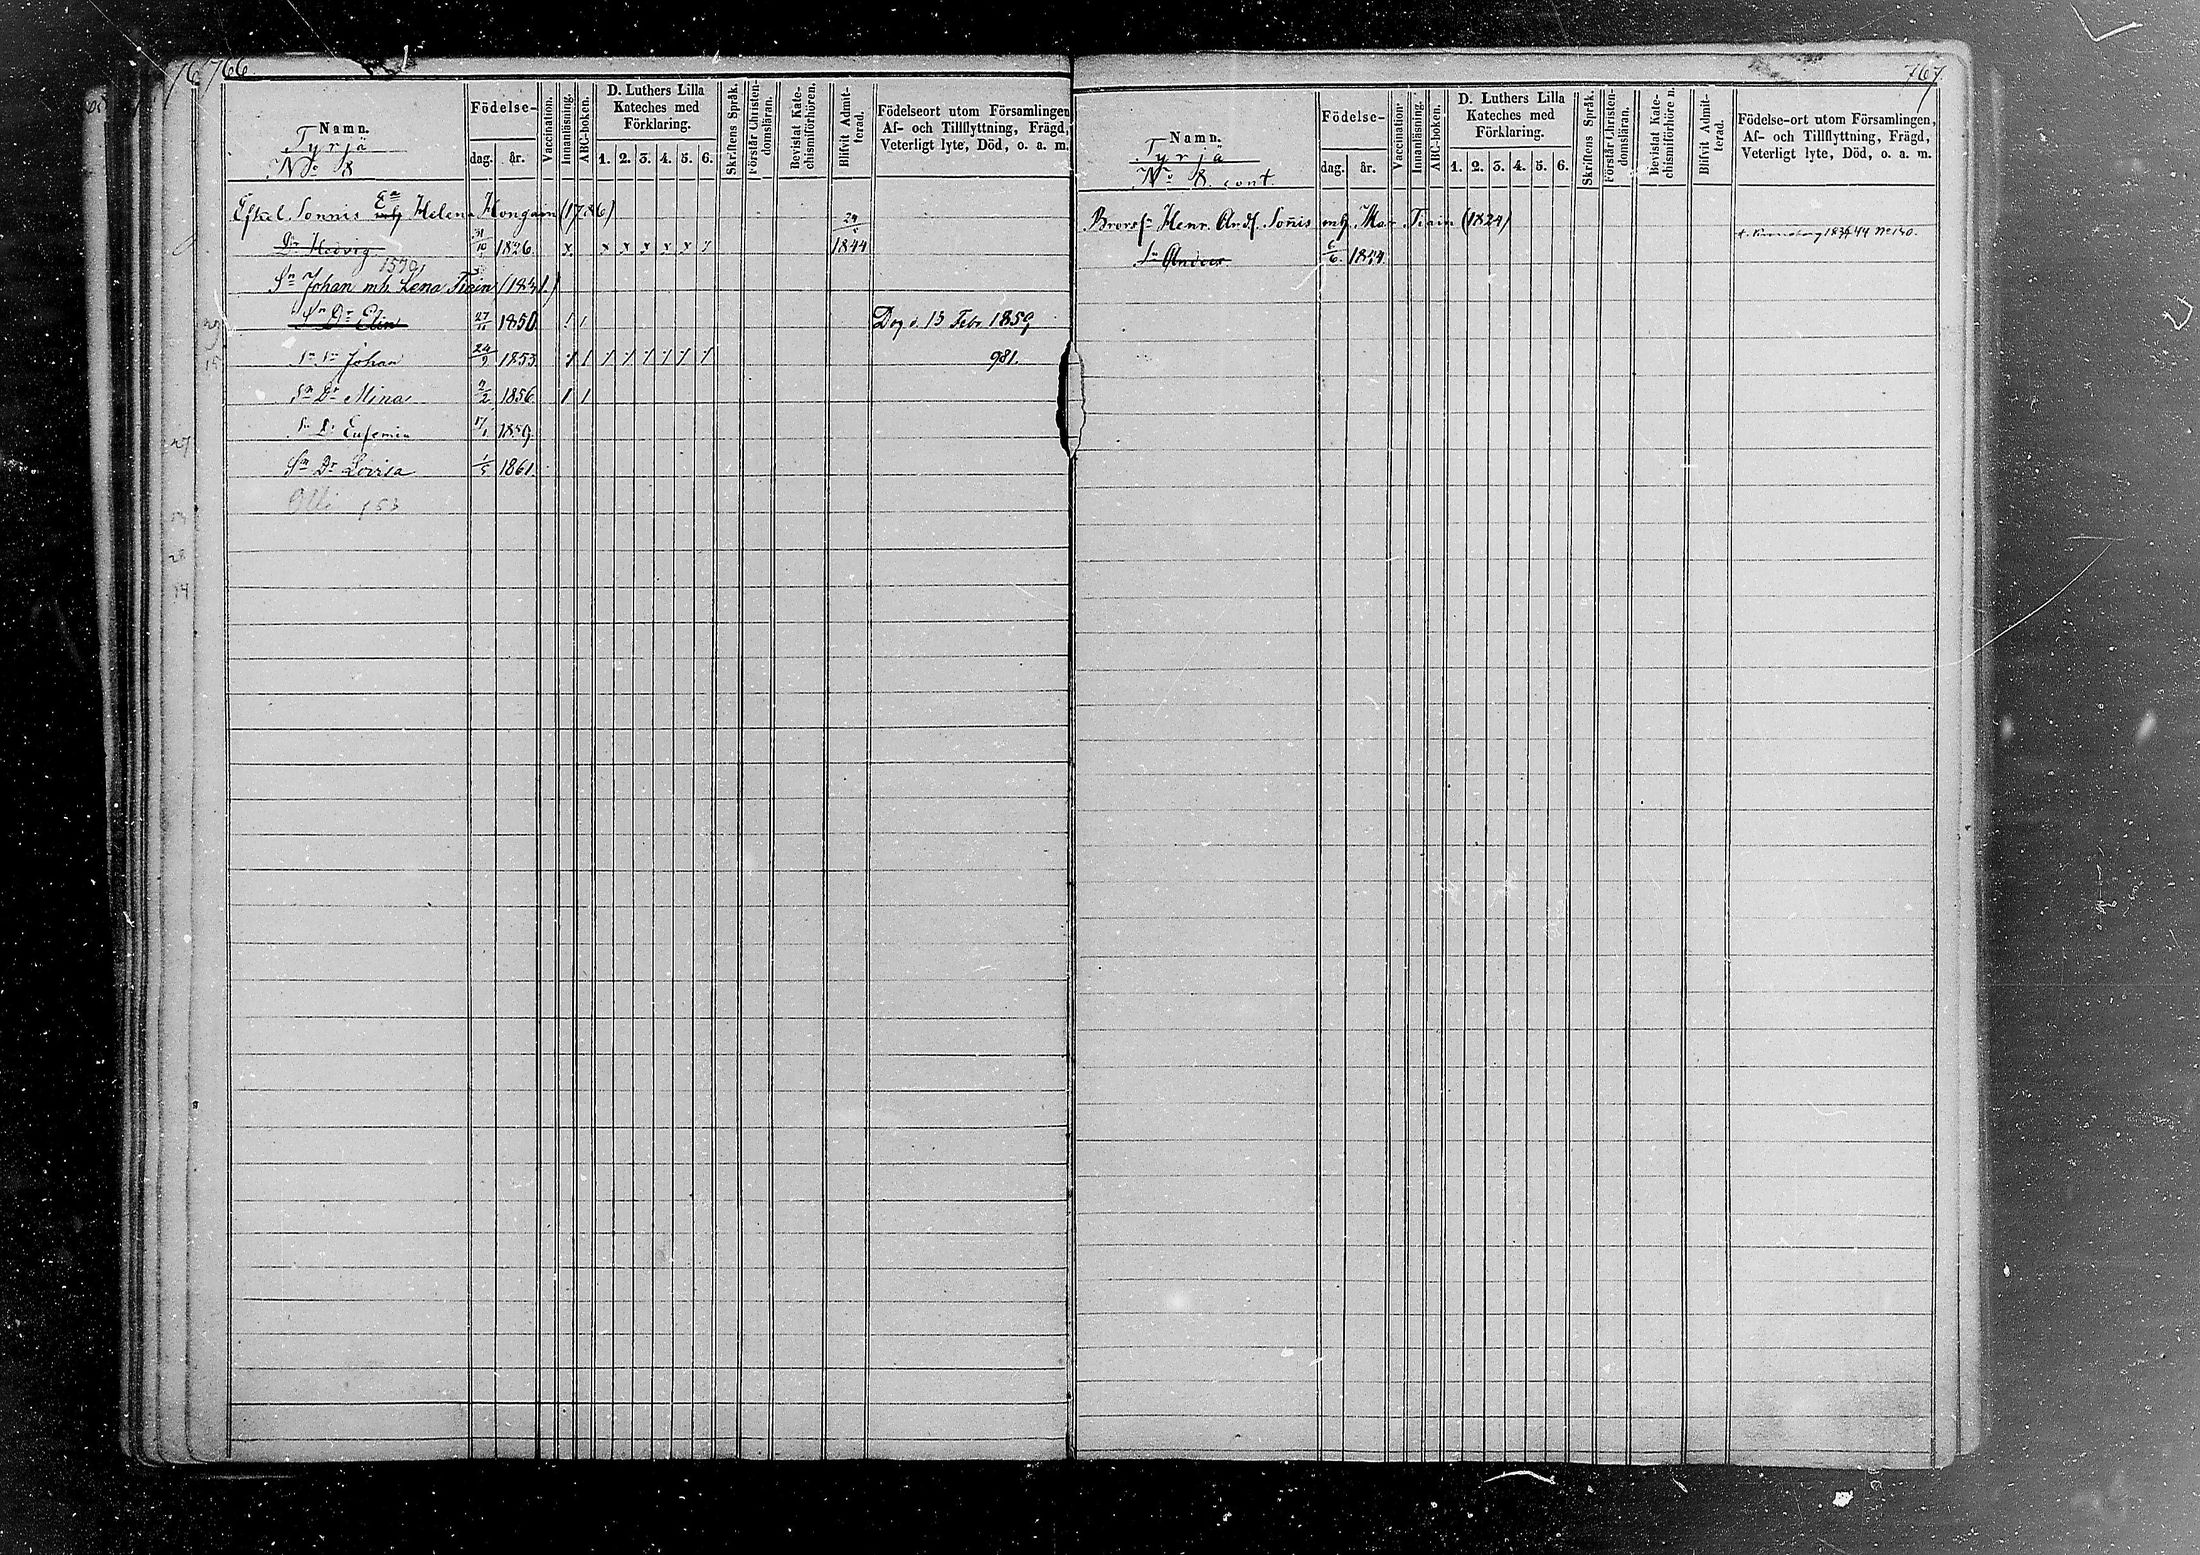 766
Namn.
Tyrjä
No 8
Födelse-
dag. år.
Vaccination.
Innanläsning.
ABC-boken.
D. Luthers Lilla
Kateches med
Förklaring.
1. 2. 3. 4. 5. 6.
Skriftens Språk.
Förstår Christen-
domsläran.
Bevistat Kate-
chismiförhören.
Blifvit Admit-
terad.
Födelseort utom Församlingen
Af- och Tillflyttning, Frägd,
Veterligt lyte, Död, o. a. m.
Sonnis Helena Hongain (1786)
Dr Hedvig 31/10 1826. x x x x x x 7 24 1844
1579
Sn Johan mh Lena Tiain (1831.)
Sn Dr Elin 27 1850 1 1 Dog d. 13 Febr 1859
Sn Sn Johan 24/9 1853 1 1 7 7 7 7 7 7 981.
Sn Dr Mina 2 1856 1 1
Sn Dr Eufemia 17 1859.
Sn Dr Lovisa 1/5 1861
767
Namn.
Tyrjä
No 8. cont.
Födelse-
dag. år.
Vaccination.
Innanläsning.
ABC-boken.
D. Luthers Lilla
Kateches med
Förklaring.
1. 2. 3. 4. 5. 6.
Skriftens Språk.
Förstår Christen-
domsläran.
Bevistat Kate-
chismiförhören.
Blifvit Admit-
terad.
Födelse-ort utom Församlingen,
Af- och Tillflyttning, Frägd,
Veterligt lyte, Död, o. a. m.
Henr. And. Soñis mh Mar. Tiain (1824)
Sn Anders 6/6. 1844